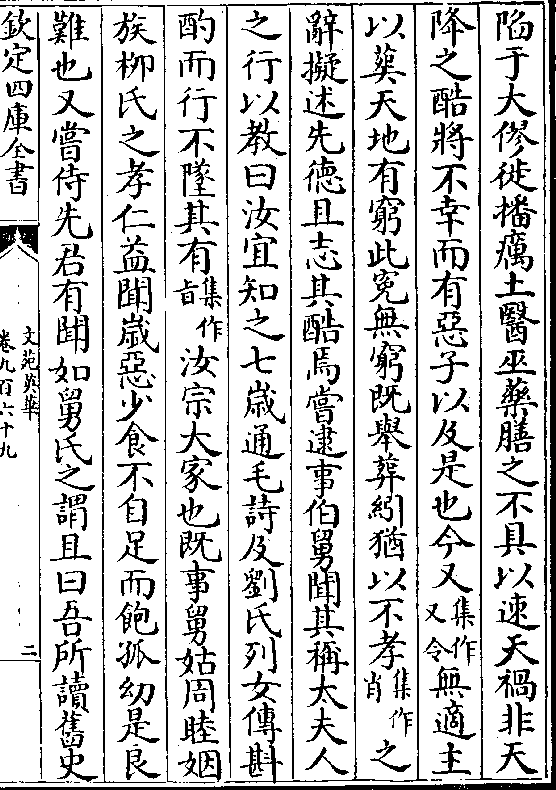 陷于大僇徙播癘土醫巫藥膳之不具以速天禍非天
降之酷將不幸而有惡子以及是也今又集作又令無適主
以葬天地有窮此冤無窮既舉葬紖猶以不孝集作肖之
辭擬述先德且志其酷焉嘗逮事伯舅聞其稱太夫人
之行以教曰汝宜知之七歲通毛詩及劉氏列女傳斟
酌而行不墜其有集作旨汝宗大家也既事舅姑周睦姻
族柳氏之孝仁益聞歲惡少食不自足而飽孤幼是良
難也又嘗侍先君有聞如舅氏之謂且曰吾所讀舊史
欽定四庫全書
文苑英華
卷九百六十九
二